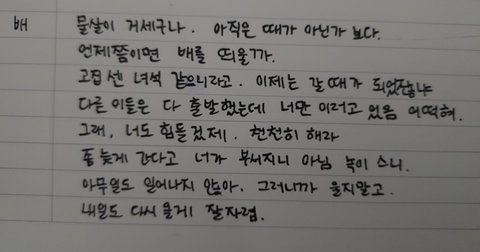 배 물살이 거세구나. 아직은 때가 아닌가 보다.
언제쯤이면 배를 띄울까.
고집 센 녀석 같으니라고. 이제는 갈 때가 되었잖냐
다른 이들은 다 출발했는데 너만 이러고 있음 어떡혀.
그래, 너도 힘들겠제. 천천히 해라
좀 늦게 간다고 너가 부서지니 아님 녹이 스니.
아무일도 일어나지 않아. 그러니까 울지말고.
내일도 다시 올게 잘자렴.